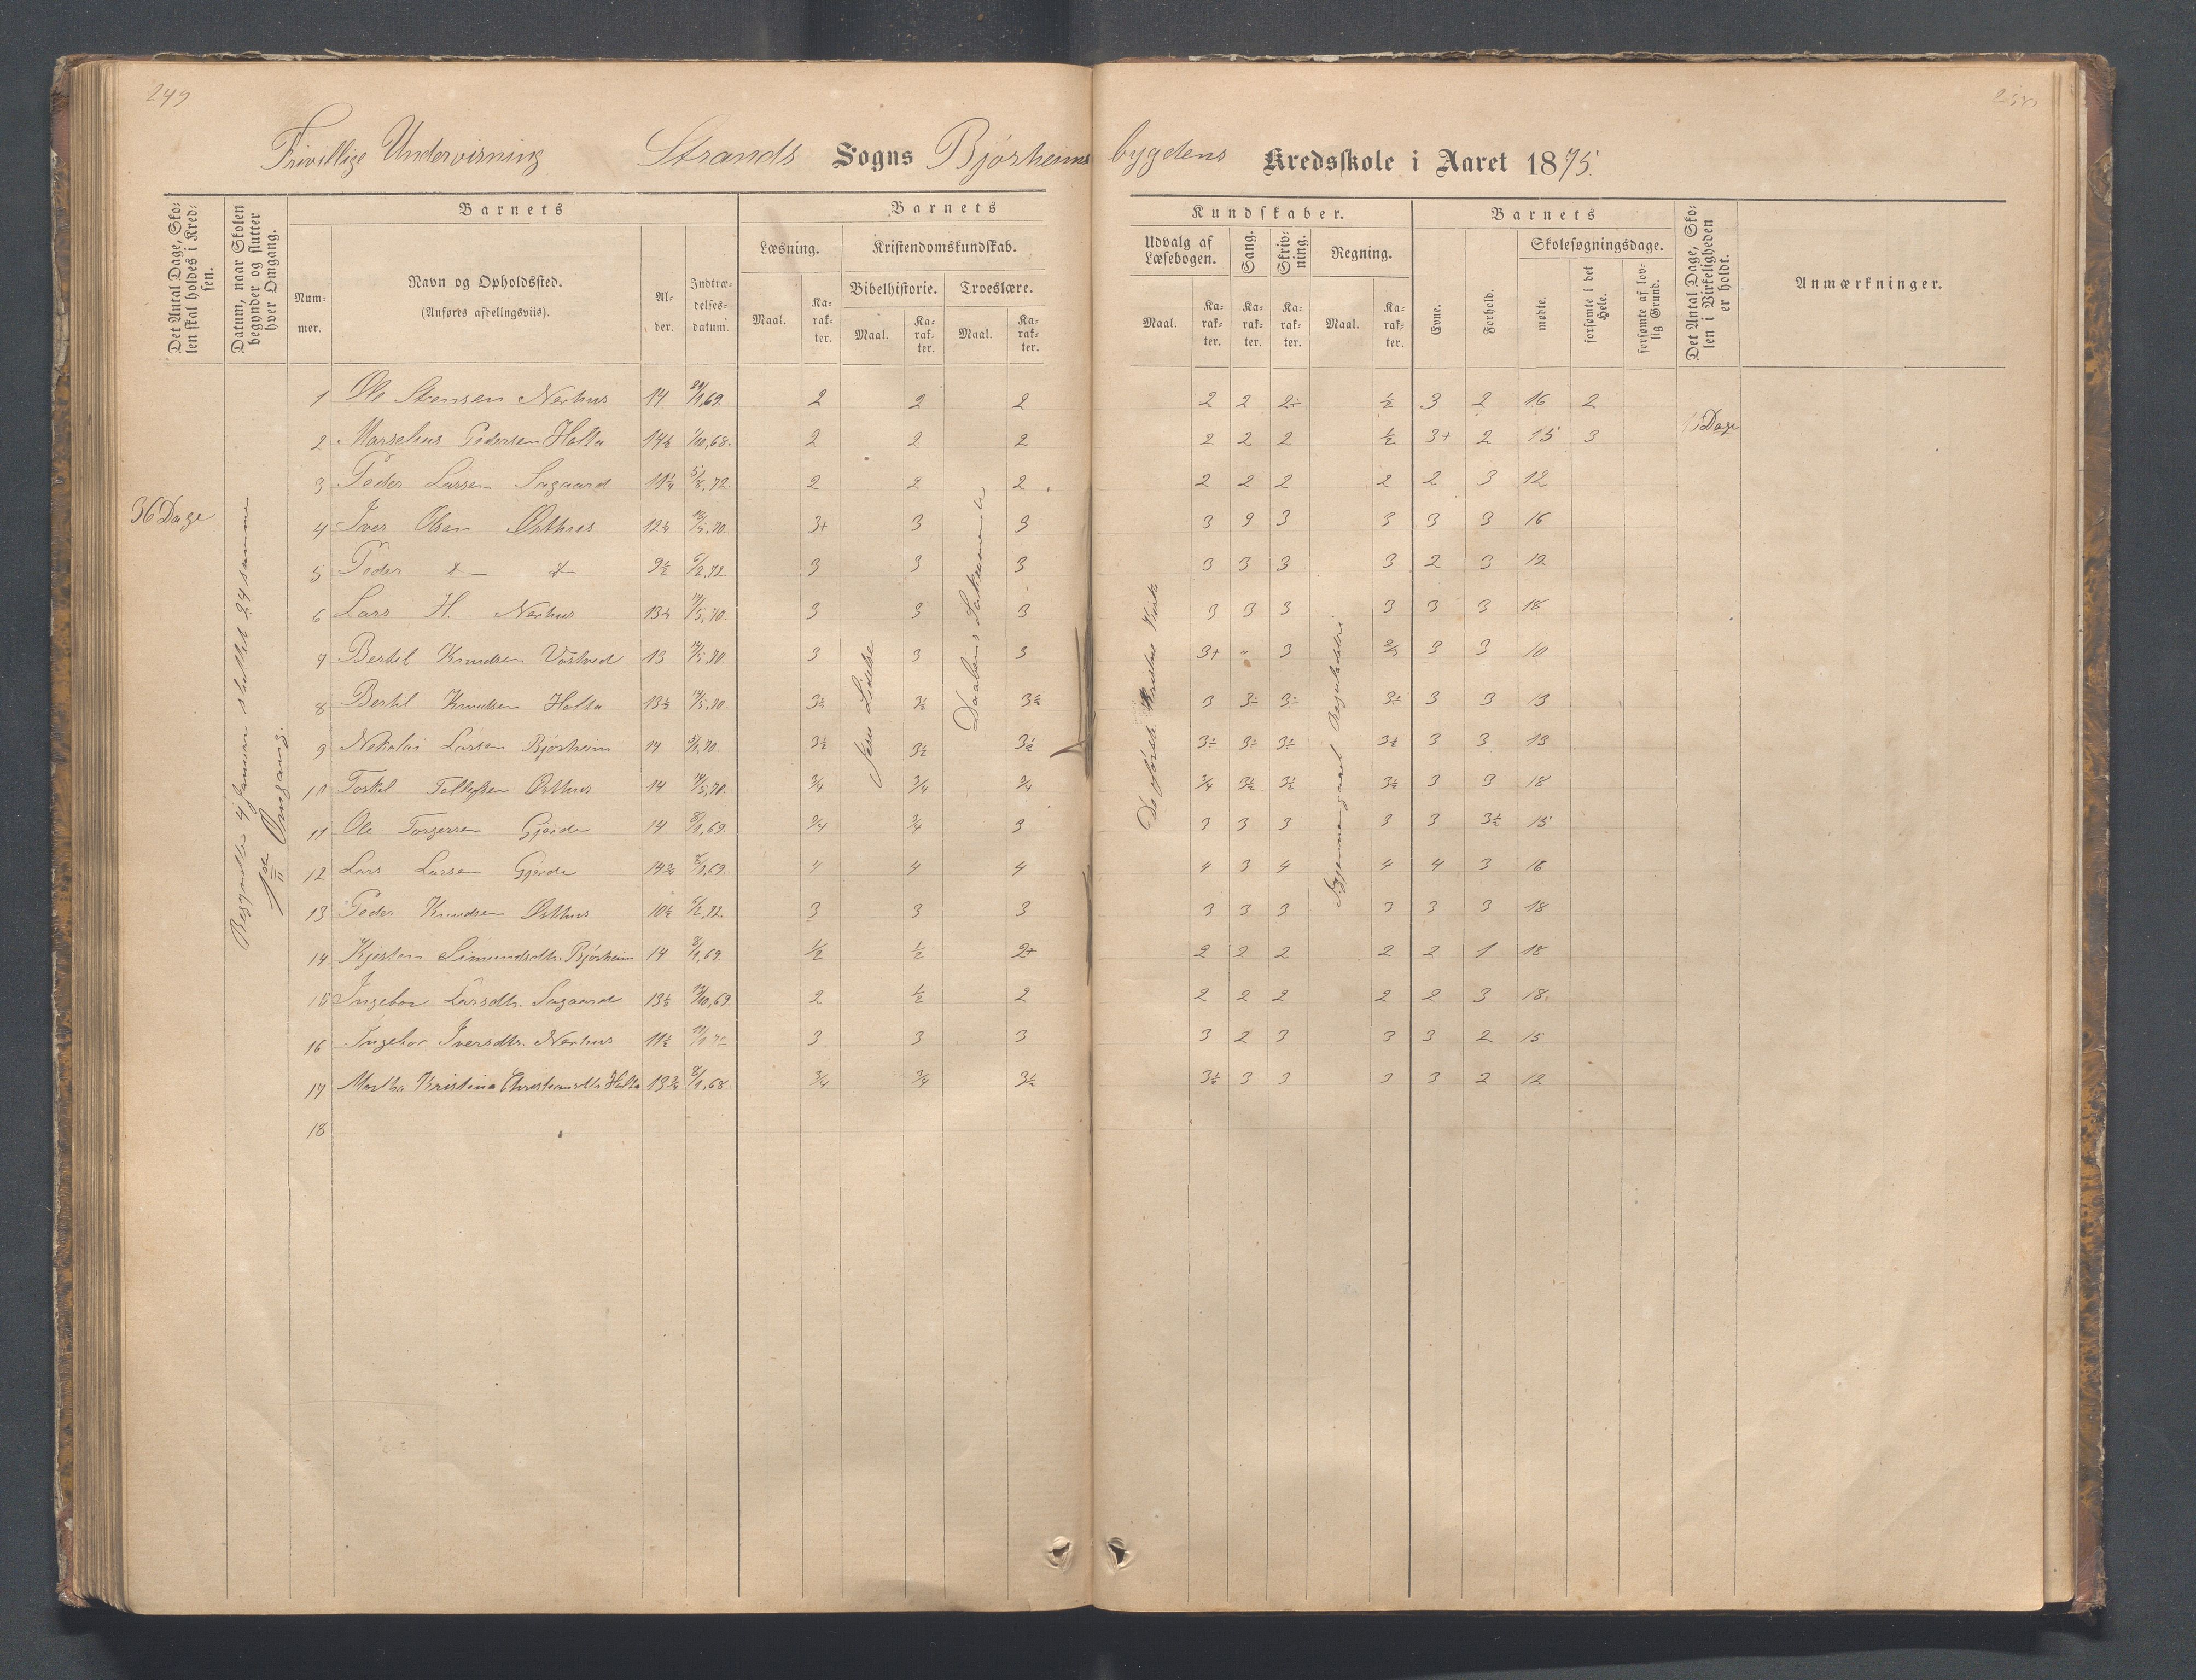 249
Frivillige Undervisning Strands Sogns Bjørheims bygdens Kredsskole i Aaret 1875.
Det Antal Dage, Skolen skal holdes i Kredsen.
Datum, naar Skolen begynder og slutter hver Omgang.
Barnets
Barnets
Kundskaber.
Barnets
Det Antal Dage, Skolen i Virkeligheden er holdt.
Anmærkninger.
Nummer.
Navn og Opholdssted.
(Anføres afdelingsviis).
Alder.
Indtrædelsesdatum.
Læsning.
Kristendomskundskab.
Bibelhistorie.
Troeslære.
Udvalg af Læsebogen.
Sang.
Skrivning.
Regning.
Evne.
Forhold.
Skolesøgningsdage.
mødte.
forsømte i det Hele.
forsømte af lovlig Grund.
Maal. Karakter. Maal. Karakter. Maal. Karakter. Maal. Karakter. Karakter. Karakter. Maal. Karakter.
36 Dage
Begyndte 4 Januar sluttet 24 samme
1ste Omgang.
Jesu Lidelse
Daabens Sakramente
Gjennemgaaet Reguladetri
1 Ole Stensen Nerhus 14 2 2 2 2 2 2÷ ½ 3 2 16 2
2 Marselius Pedersen Holta 14½ 1/10,68. 2 2 2 2 2 2 ½ 3+ 2 15 3 Dage
3 Peder Larsen Sagaard 11¼ 5/8,72. 2 2 2 2 2 2 2 2 3 12
4 Iver Olsen Østhus 12½ 3+ 3 3 3 3 3 3 3 3 16
5 Peder — 9½ 6/2,72. 3 3 3 3 3 3 3 2 3 12
6 Lars H. Nerhus 13½ 14/5,70. 3 3 3 3 3 3 3 3 3 18
7 Bertil Knudsen Vostved 13 14/5,70. 3 3 3 3+ " 3 2/3 3 3 10
8 Bertil Knudsen Holta 13½ 14/5,70 3½ 3½ 3½ 3 3÷ 3÷ 3÷ 3 3 13
9 Nikolai Larsen Bjørheim 14 3½ 3½ 3½ 3÷ 3÷ 3÷ 3½ 3 3 13
10 Torkel Tollefsen Østhus 14 14/5,70. 3/4 3/4 3/4 3/4 3½ 3½ 3½ 3 3 18
11 Ole Torgersen Gjeide 14 8/1,69. 3/4 3/4 3 3 3 3 3 3 3½ 15
12 Lars Larsen Gjeide 14¾ 8/1,69. 4 4 4 4 3 4 4 4 3 16
13 Peder Knudsen Østhus 10½ 6/2,72. 3 3 3 3 3 3 3 3 3 18
14 Kjersten Simundsdtr. Bjørheim 14 8/1,69. ½ ½ 2+ 2 2 2 2 2 1 18
15 Ingebor Larsdtr. Sagaard 13½ 2 ½ 2 2 2 2 2 2 3 18
16 Ingebor Iversdtr. Nerhus 11½ 3 3 3 3 2 3 3 3 2 15
17 Martha Kristina Christiansdtr Holta 13¾ 8/1,68. 3/4 3/4 3½ 3½ 3 3 3 3 2 12
18